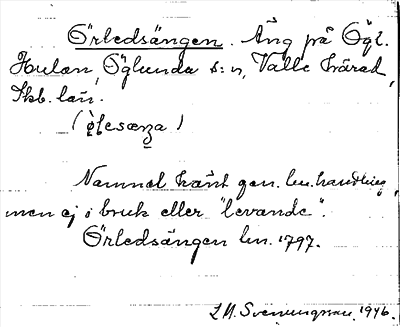 Örledsängen. Äng på Ögl.
Hulan, Öglunda s:n, Valle härad,
Skb. län.
Namnet känt gen. lm. handling
men ej i bruk eller "levande".
Örledsängen lm. 1797.
Svenungsson, 1946.